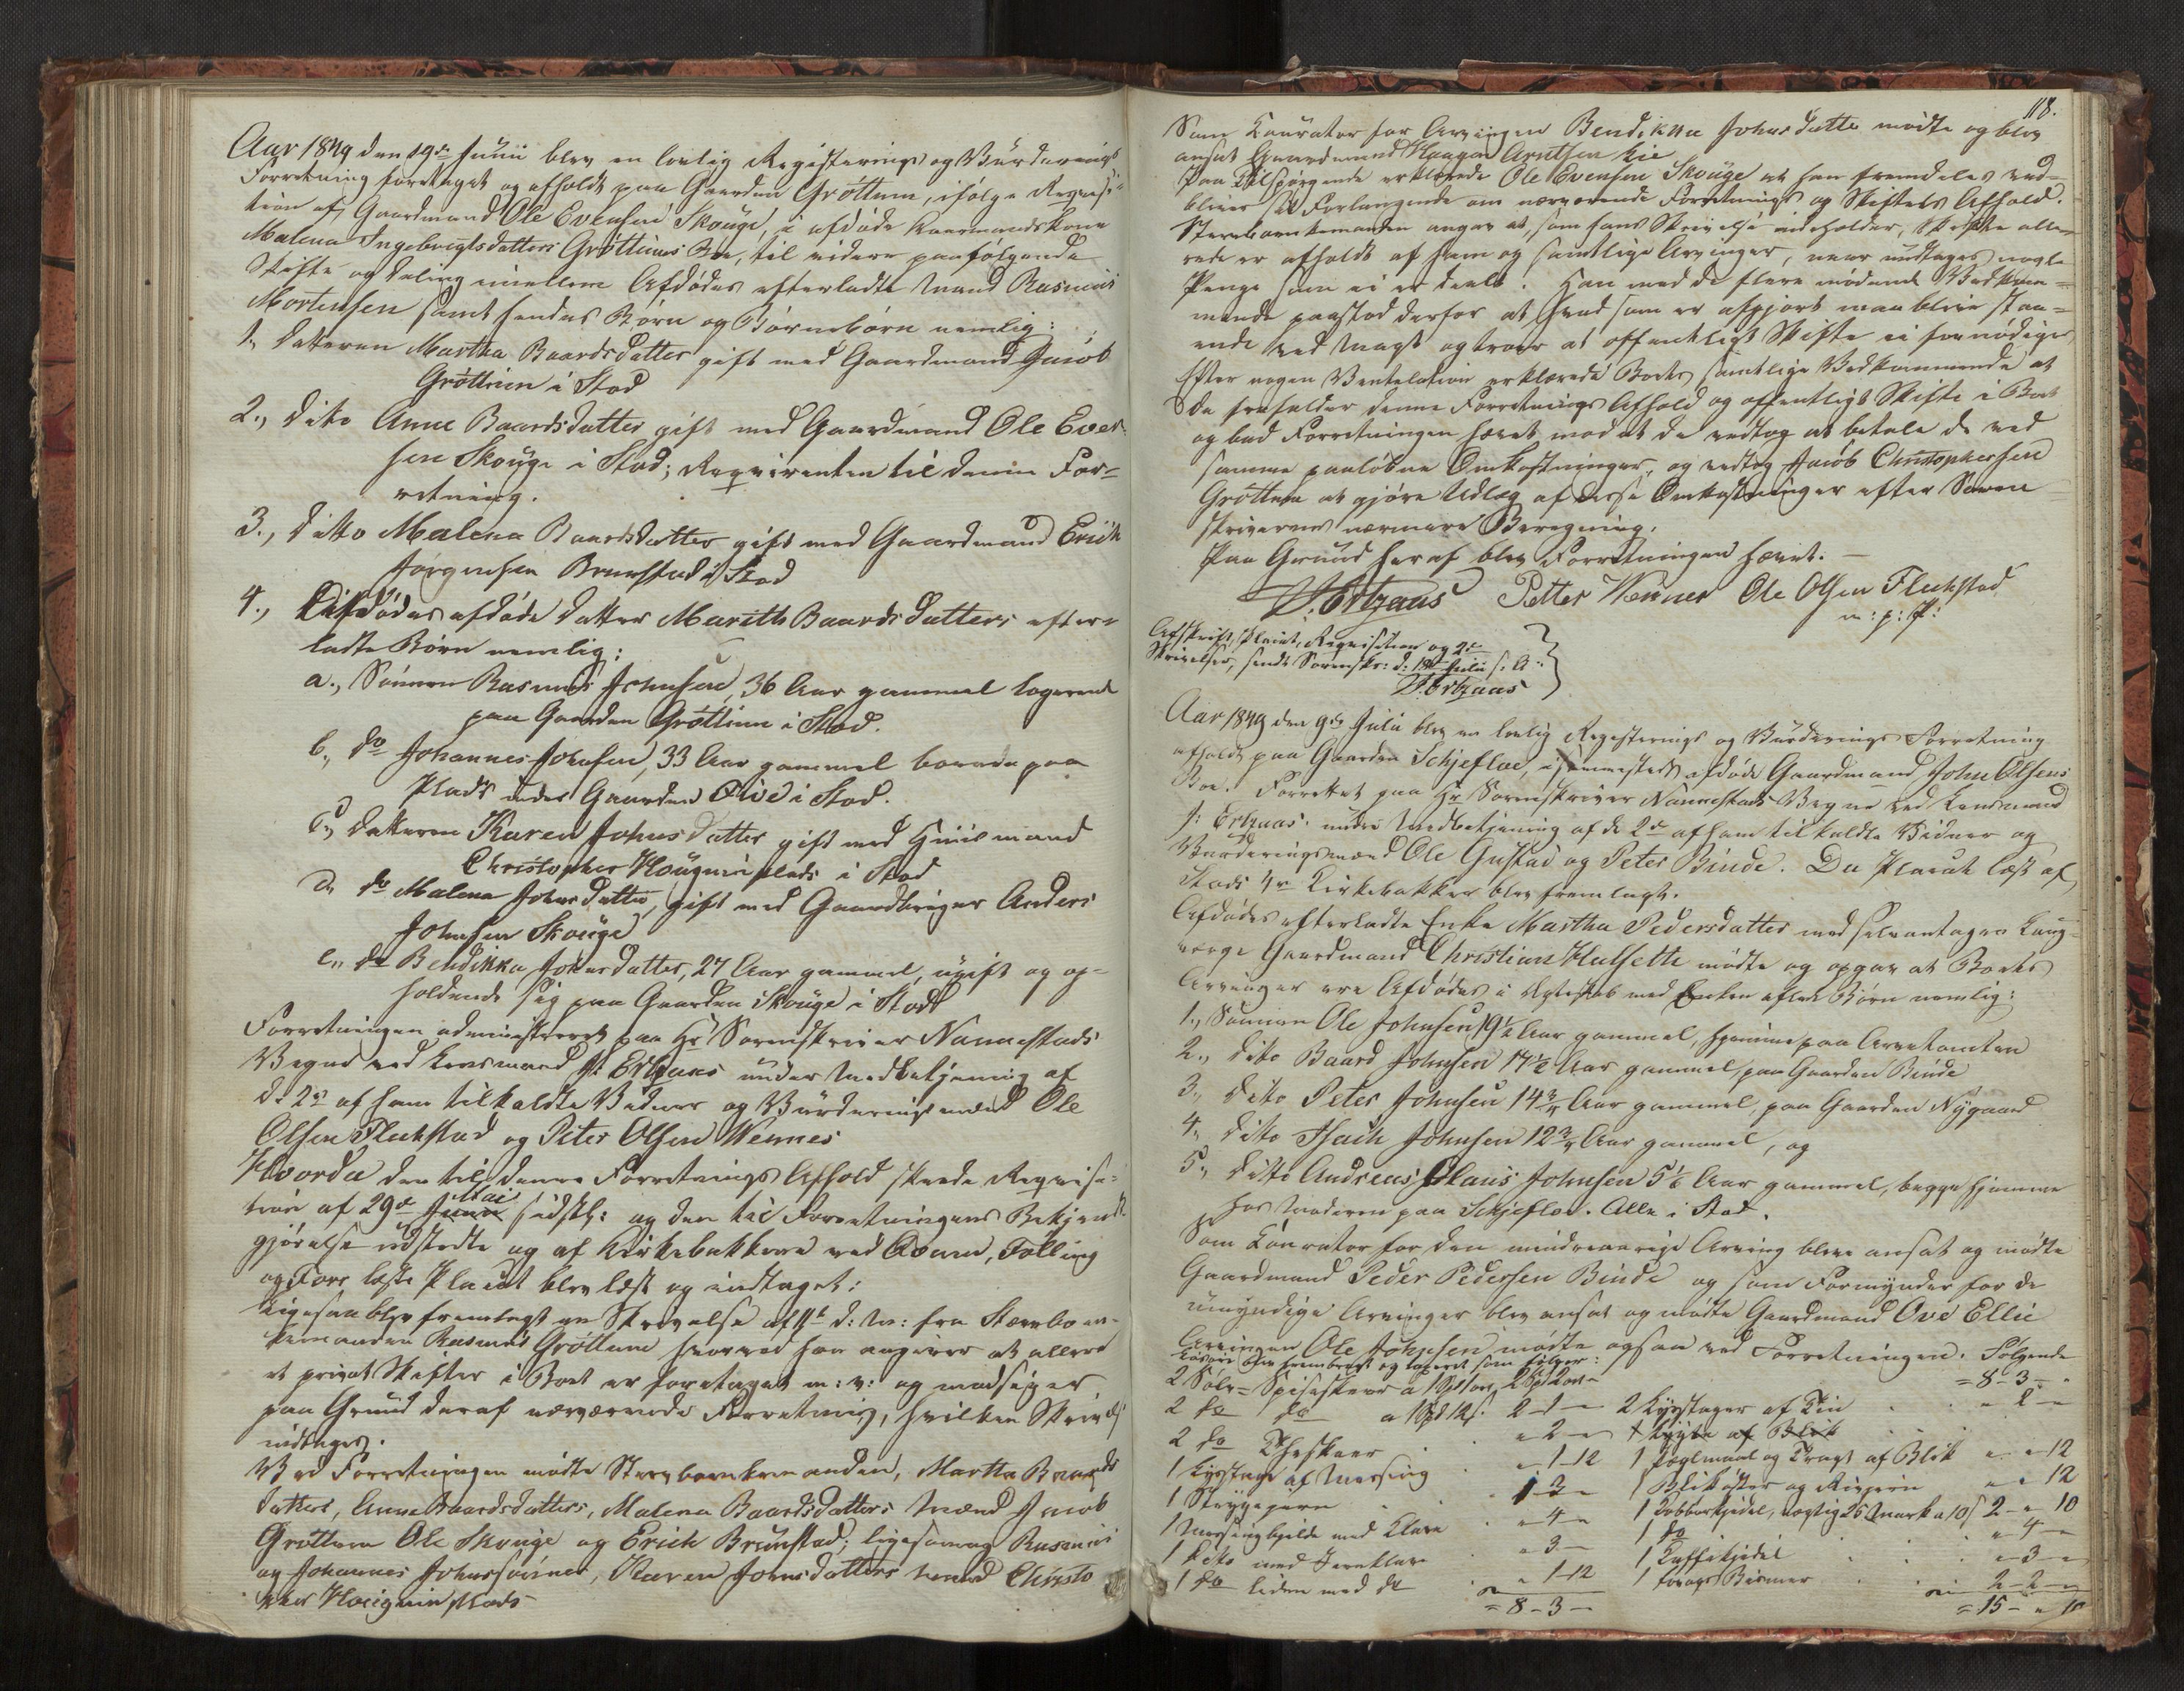 Aar 1849 den 19de Junii blev en lovlig Registerings og Vurderings
Forretning foretaget og afholdt paa Gaarden Grøttum, ifølge Reqvisi-
tion af Gaardmand Ole Evensen Skouge, i afdøde Kaarmandskone
Malena Ingebrigtsdatters Grøttums Boe, til videre paafølgende
Skifte og Deling imellem Afdødes efterladte Mand Rasmus
Mortensen samt hendes Børn og Børnebørn nemlig:
1., Datteren Martha Baardsdatter gift med Gaardmand Jacob
Grøttum i Stod
2., Dito Anne Baardsdatter gift med Gaardmand Ole Even-
sen Skouge i Stod; Reqvirenten til denne For-
retning.
3., Ditto Malena Baardsdatter gift med Gaardmand Erich
Jørgensen Brunstad i Stod
4., Afdødes afdøde Datter Marith Baardsdatters efter-
ladte Børn nemlig:
a., Sønnen Rasmus Johnsen, 36 Aar gammel logerende
paa Gaarden Grøttum i Stod.
b., do Johannes Johnsen, 33 Aar gammel boende paa
Plads under Gaarden Qvie i Stod.
c., Datteren Karen Johnsdatter gift med Huusmand
Christopher Hougmirplads i Stod
d., do Malena Johnsdatter, gift med Gaardbruger Anders
Johnsen Skouge
e., do Bendikka Johnsdatter, 27 Aar gammel, ugift og op-
holdende sig paa Gaarden Skouge i Stod
Forretningen administreret paa Hr Sorenskriver Nannestads
Vegne ved Lensmand J. Ertzaas under Medbetjening af
de 2de af ham tilkaldte Vidner og Vurderingsmænd Ole
Olsen Fleckstad og Peter Olsen Wennes
Hvorda den til denne Forretnings Afhold skeede Reqvisi-
tion af 29de Mai sidstl: og den til Forretningens Bekjendt-
gjørelse udstedte og af Kirkebakkerne ved Qvam, Følling
og For læste Placat blev læst og indtaget:
Ligesaa blev fremlagt en Skrivelse af d: M: fra Stervboen-
kemanden Rasmus Grøttum hvorved han angiver at allered
et privat Skifte i Boet er foretaget m: v: og modsiger
paa Grund deraf nærværende Forretning, hvilken Skrivelse
indtages.
Ved Forretningen mødte Stervboenkemanden, Martha Baards
datters, Anne Baardsdatters, Malena Baardsdatters Mænd Jacob
Grøttum Ole Skouge og Erich Brunstad; ligesom og Rasmus
og Johannes Johnssønner, Karen Johnsdatters Mand Christo
pher Hougmirplads
118.
Som Kaurator for Arvingen Bendikka Johnsdatter mødte og blev
ansat Gaardmand Haagen Arntsen Lie
Paa Tilspørgende erklærede Ole Evensen Skouge at han fremdeles ved-
bliver sit Forlangende om nærværende Forretnings og Skiftets Afhold.
Stervboenkemanden angav at, som hans Skrivelse indeholder, Skifte alle-
rede er afholdt af ham og samtlige Arvinger, naar undtages nogle
Penge som ei er deelt. Han med de flere mødende Vedkom-
mende paastod derfor at hvad som er afgjort maa blive staa-
ende ved Magt og troer at offentligt Skifte ei fornødiges
Efter nogen Ventelation erklærede Boets samtlige Vedkommende at
de frafalder denne Forretnings Afhold og offentligt Skifte i Boet
og bad Forretningen hævet mod at de vedtog at betale de ved
samme paaløbne Omkostninger, og vedtog Jacob Christophersen
Grøttum at gjøre Udlæg af disse Omkostninger efter Soren
skriverens nærmere Beregning.
Paa Grund heraf blev Forretningen hævet. —
J. Ertzaas Petter Wennes Ole Olsen Fleckstad
m: p: P:
Afskrift, Placat, Reqvisition og 2de
Skrivelser, sendt Sorenskr: d: Julii s. A.
J. Ertzaas
Aar 1849 den 9de Julii blev en lovlig Registerings og Vurderings Forretning
afholdt paa Gaarden Schjefloe, i sammesteds afdøde Gaardmand John Olsens
Boe. Forrettet paa Hr Sorenskriver Nannestads Vegne ved Lensmand
J: Ertzaas under Medbetjening af de 2de af ham tilkaldte Vidner og
Vurderingsmænd Ole Gustad og Peter Binde. Den Placat læst af
Stods Kirkebakker blev fremlagt.
Afdødes efterladte Enke Martha Pedersdatter med selvantagen Laug-
værge Gaardmand Christian Hulsette mødte og opgav at Boets
Arvinger ere Afdødes i Ægteskab med Enken aflede Børn nemlig:
1., Sønnen Ole Johnsen 19½ Aar gammel, hjemme paa Arvetomten
2., Dito Baard Johnsen 17½ Aar gammel, paa Gaarden Binde
3., Dito Peter Johnsen 14¾ Aar gammel, paa Gaarden Nygaard
4., Ditto Isach Johnsen 12¾ Aar gammel, og
5., Ditto Andreas Claus Johnsen 5½ Aar gammel, begge hjemme
hos Moderen paa Schjefloe. Alle i Stod.
Som Kaurator for den mindreaarige Arving blev ansat og mødte
Gaardmand Peder Pedersen Binde og som Formynder for de
umyndige Arvinger blev ansat og mødte Gaardmand Ove Ellie
Arvingen Ole Johnsen mødte ogsaa ved Forretningen. Følgende
Løsøre blev frembragt og taxeret som følger:
2 Sølv-Spiseskeer a 1 Spd 1 ort 2 Spd 2 ort = 8-3-
2 do do a 1 Spd 12 s. 2-1- 2 Lysestager af Tin - 2 -
2 do Theskeer - 2 -
1 Lysestage af Messing - 1-12 1 Pæglmaal og Tragt af Blik - - 12
1 Strygejern 1 Blikøster og Rivjern - - 12
1 Messingbjelde med Klave - 4 - 1 Kobberkjedel, vægtig 25 Mark a 10 s 2 - 10
1 Dito med Jernklave - 3 - 1 do - 4 -
1 do liden med do - 1-12 1 Kaffekjedel - 3 -
= 8-3- 1 Bismer 2-2-
= 15- - 10